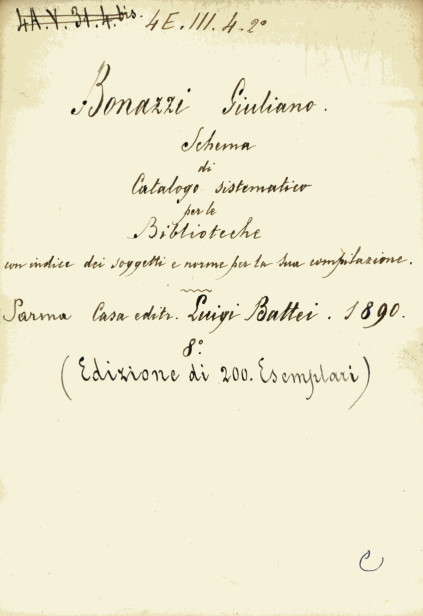 4A.V.31.4.bis. 4E.III.4.2º
Bonazzi Giuliano.
Schema
di
Catalogo sistematico
per le
Biblioteche
con indice dei soggetti e norme per la sua compilazione.
Parma Casa editr. Luigi Battei. 1890.
8.º
(Edizione di 200. Esemplari)
C